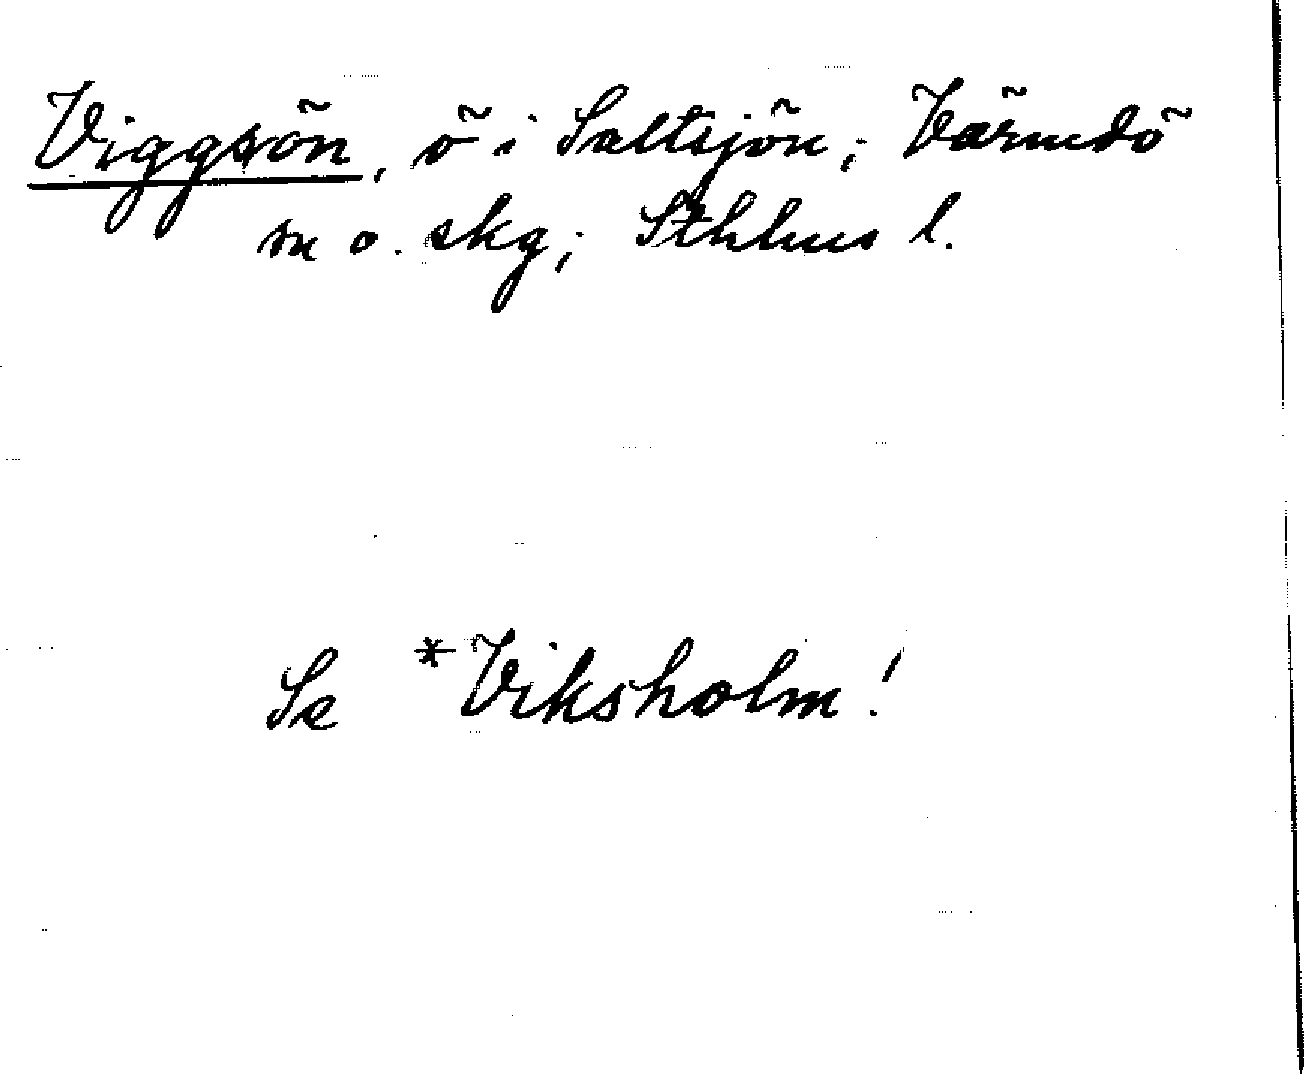 Viggsön, ö i Saltsjön; Värmdö
sn o. skg; Sthlms l.
Se *Viksholm!